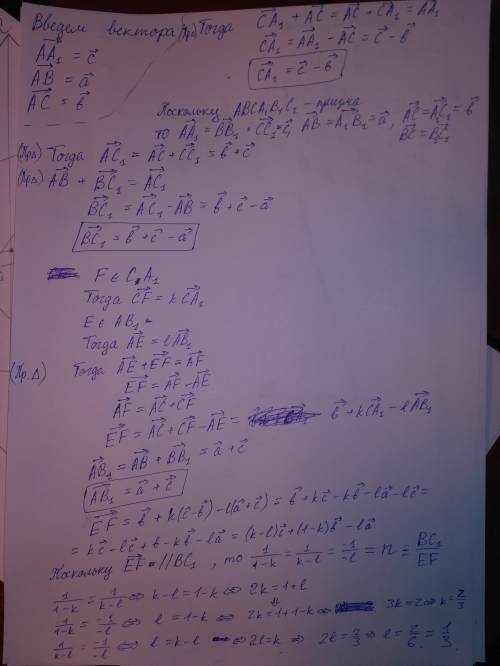 Введем вектора
(Пр△) Тогда $\vec{CA_1} + \vec{AC} = \vec{AC} + \vec{CA_1} = \vec{AA_1}$
$\vec{AA_1} = \vec{c}$
$\vec{CA_1} = \vec{AA_1} - \vec{AC} = \vec{c} - \vec{b}$
$\vec{AB} = \vec{a}$
$\vec{CA_1} = \vec{c} - \vec{b}$
$\vec{AC} = \vec{b}$
Поскольку ABCA₁B₁C₁ - призма
то $\vec{AA_1} = \vec{BB_1} = \vec{CC_1} = \vec{c}$, $\vec{AB} = \vec{A_1B_1} = \vec{a}$, $\vec{AC} = \vec{AC_1} = \vec{b}$
$\vec{BC} = \vec{BC_1}$
(Пр△) Тогда $\vec{AC_1} = \vec{AC} + \vec{CC_1} = \vec{b} + \vec{c}$
(Пр△) $\vec{AB} + \vec{BC_1} = \vec{AC_1}$
$\vec{BC_1} = \vec{AC_1} - \vec{AB} = \vec{b} + \vec{c} - \vec{a}$
$\vec{BC_1} = \vec{b} + \vec{c} - \vec{a}$
F ∈ C A₁
Тогда $\vec{CF} = k\vec{CA_1}$
E ∈ AB₁
Тогда $\vec{AE} = l\vec{AB_1}$
(Пр. △) Тогда $\vec{AE} + \vec{EF} = \vec{AF}$
$\vec{EF} = \vec{AF} - \vec{AE}$
$\vec{AF} = \vec{AC} + \vec{CF}$
$\vec{EF} = \vec{AC} + \vec{CF} - \vec{AE} = \vec{b} + k\vec{CA_1} - l\vec{AB_1}$
$\vec{AB_1} = \vec{AB} + \vec{BB_1} = \vec{a} + \vec{c}$
$\vec{AB_1} = \vec{a} + \vec{c}$
$\vec{EF} = \vec{b} + k(\vec{c} - \vec{b}) - l(\vec{a} + \vec{c}) = \vec{b} + k\vec{c} - k\vec{b} - l\vec{a} - l\vec{c} =$
$= k\vec{c} - l\vec{c} + \vec{b} - k\vec{b} - l\vec{a} = (k-l)\vec{c} + (1-k)\vec{b} - l\vec{a}$
Поскольку $\vec{EF}$ // BC₁, то $\frac{1}{1-k} = \frac{1}{k-l} = \frac{-1}{-l} = n = \frac{BC_1}{EF}$
$\frac{1}{1-k} = \frac{1}{k-l}$ ⇔ k-l = 1-k ⇔ 2k = 1+l
$\frac{1}{1-k} = \frac{-1}{-l}$ ⇔ l = 1-k ⇔ 2k = 1+1-k ⇔ 3k = 2 ⇔ k = $\frac{2}{3}$
$\frac{1}{k-l} = \frac{-1}{-l}$ ⇔ l = k-l ⇔ 2l = k ⇔ 2l = $\frac{2}{3}$ ⇔ l = $\frac{2}{6} = \frac{1}{3}$